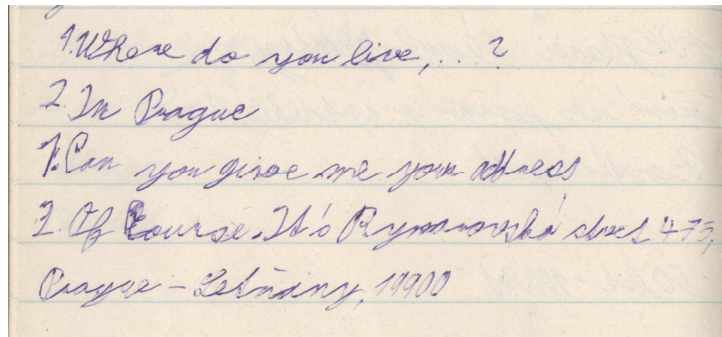 1. Where do you live, ... ?
2. In Prague
1. Can you give me your address
2. Of Course. It's Rymařovská street 475,
Prague - Letňany, 19900